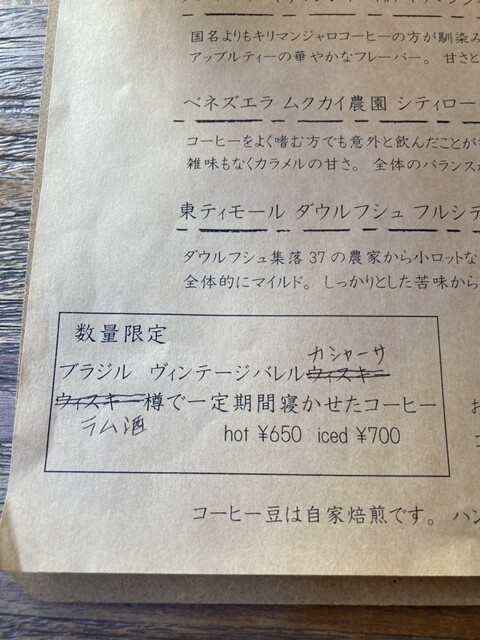 国名よりもキリマンジャロコーヒーの方が馴染み
アップルティーの華やかなフレーバー。 甘さと
ベネズエラ ムクカイ農園 シティロー
コーヒーをよく嗜む方でも意外と飲んだことが
雑味もなくカラメルの甘さ。 全体のバランス
東ティモール ダウルフシュ フルシテ
ダウルフシュ集落37の農家から小ロットな
全体的にマイルド。 しっかりとした苦味から
数量限定
カシャーサ
ブラジル ヴィンテージバレルウィスキー
ウィスキー樽で一定期間寝かせたコーヒー
ラム酒
hot ¥650 iced ¥700
コーヒー豆は自家焙煎です。 ハン